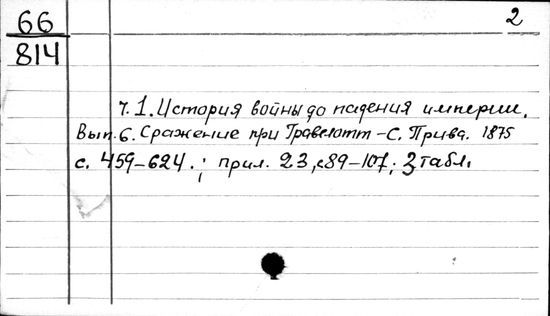 66
814
2
ч. 1. История войны до падения империи.
Вып. 6. Сражение при Гравелотт – С. Прива. 1875
с. 459–624. ; прил. 23, с 89–107; 3 табл.